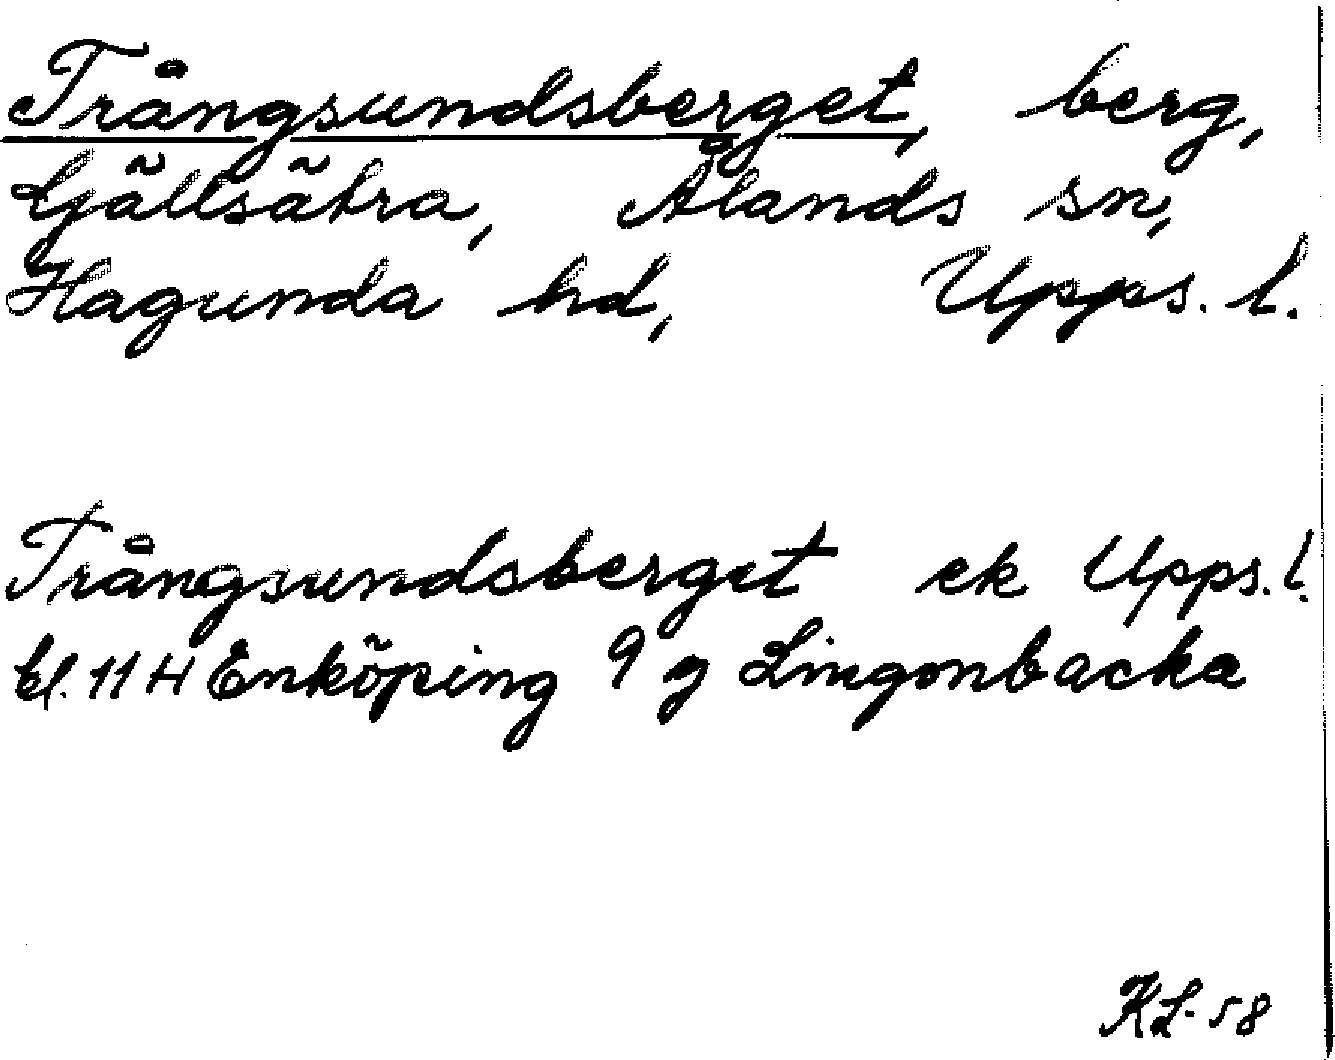 Trångsundsberget, berg,
Gjällsätra, Ålands sn,
Hagunda hd, Upps. l.
Trångsundsberget ek Upps. l.
bl. 11 H Enköping 9 g Lingonbacka
KL-58